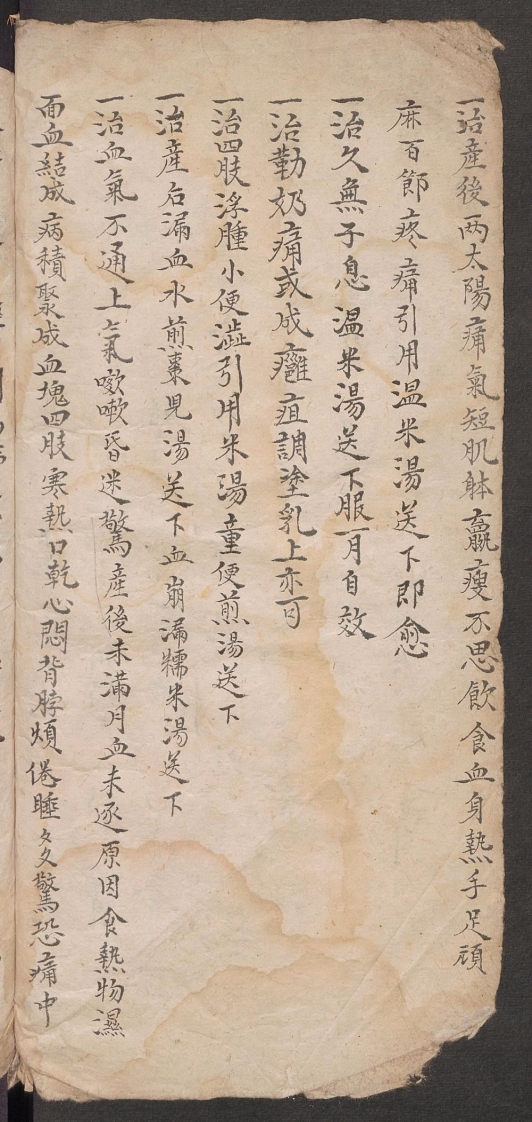 一治產後两太陽痛氣短肌躰羸瘦不思飲食血身熱手足頑
麻百節疼痛引用温米湯送下即愈
一治久無子息温米湯送下服一月自效
一治勒奶痛或成癰疽調塗乳上亦可
一治四肢浮腫小便澁引用米湯童便煎湯送下
一治產后漏血水煎棗見湯送下血崩漏糯米湯送下
一治血氣不通上氣嗽嗽昏迷驚產後未滿月血未逐原因食熱物濕
面血結成病積聚成血塊四肢寒熱口乾心悶背脖煩倦睡多驚恐痛中